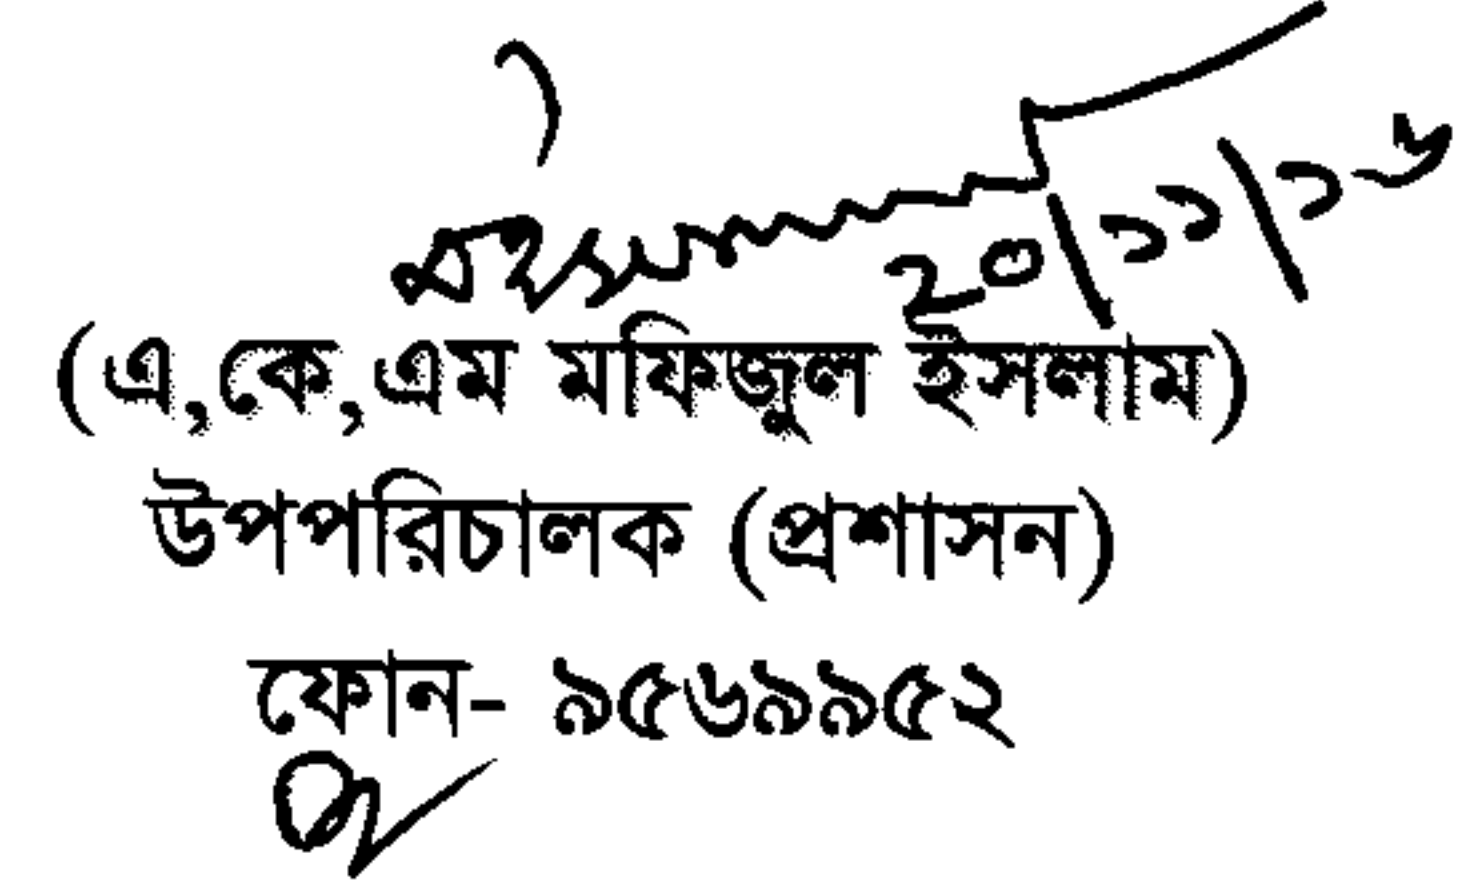 ২০/১১/১৬
(এ,কে,এম মফিজুল ইসলাম)
উপপরিচালক (প্রশাসন)
ফোন- ৯৫৬৯৯৫২